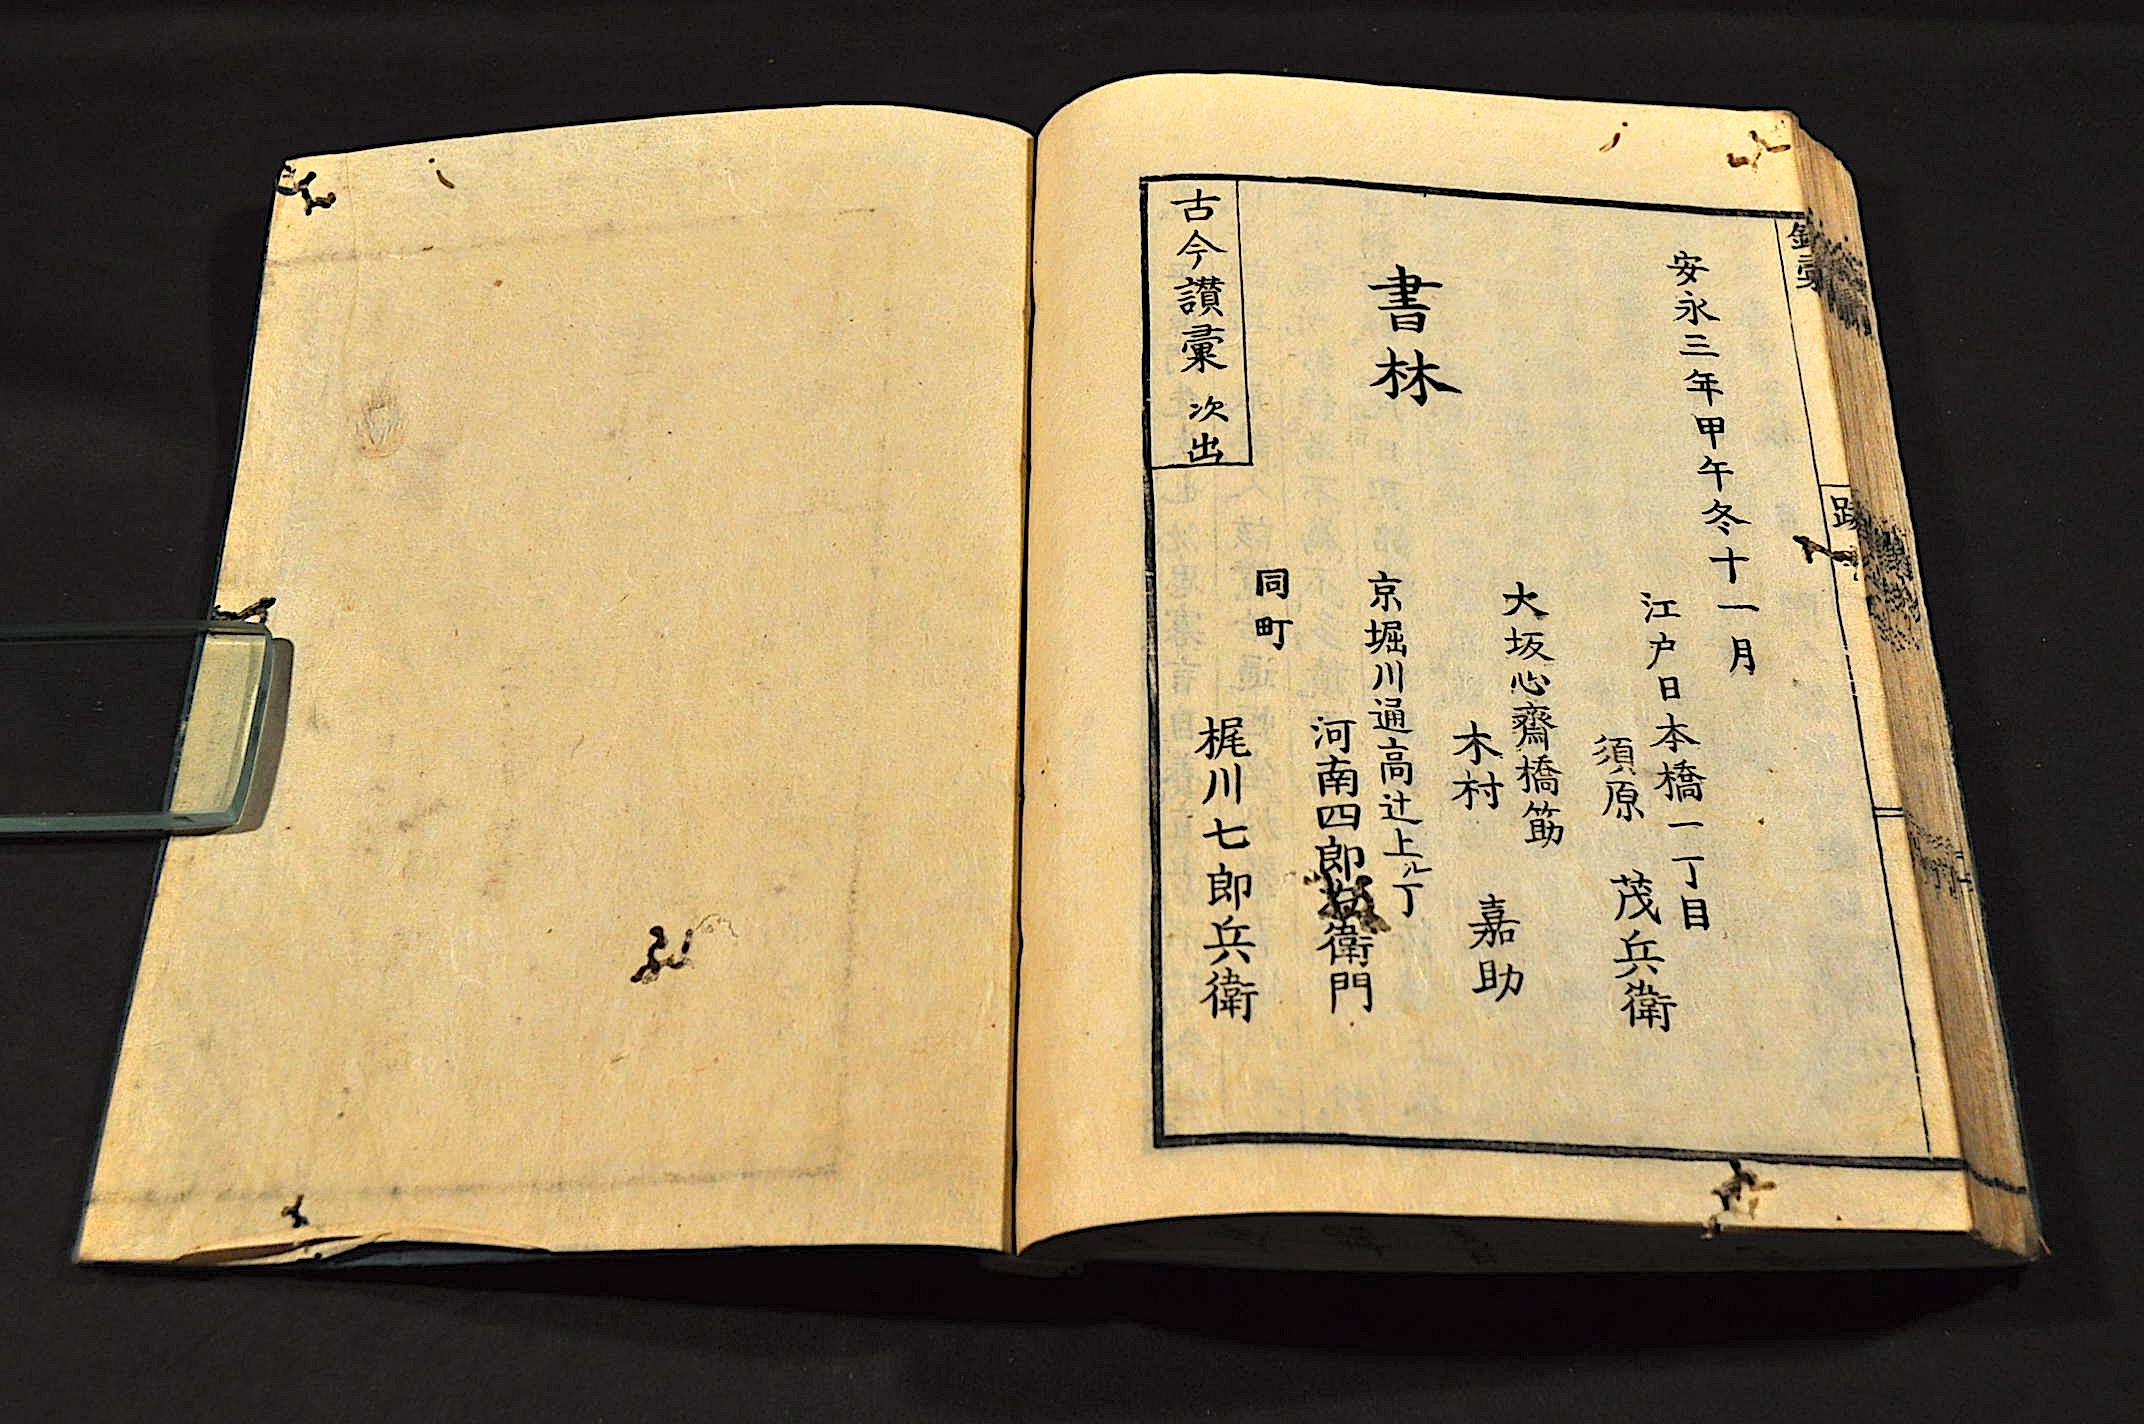 安永三年甲午冬十一月
江戸日本橋一丁目
須原 茂兵衛
大坂心齋橋筋
木村 嘉助
書林
京堀川通高辻上ル丁
河南四郎右衛門
同町
梶川七郎兵衛
古今讃彙 次出
彙
跋